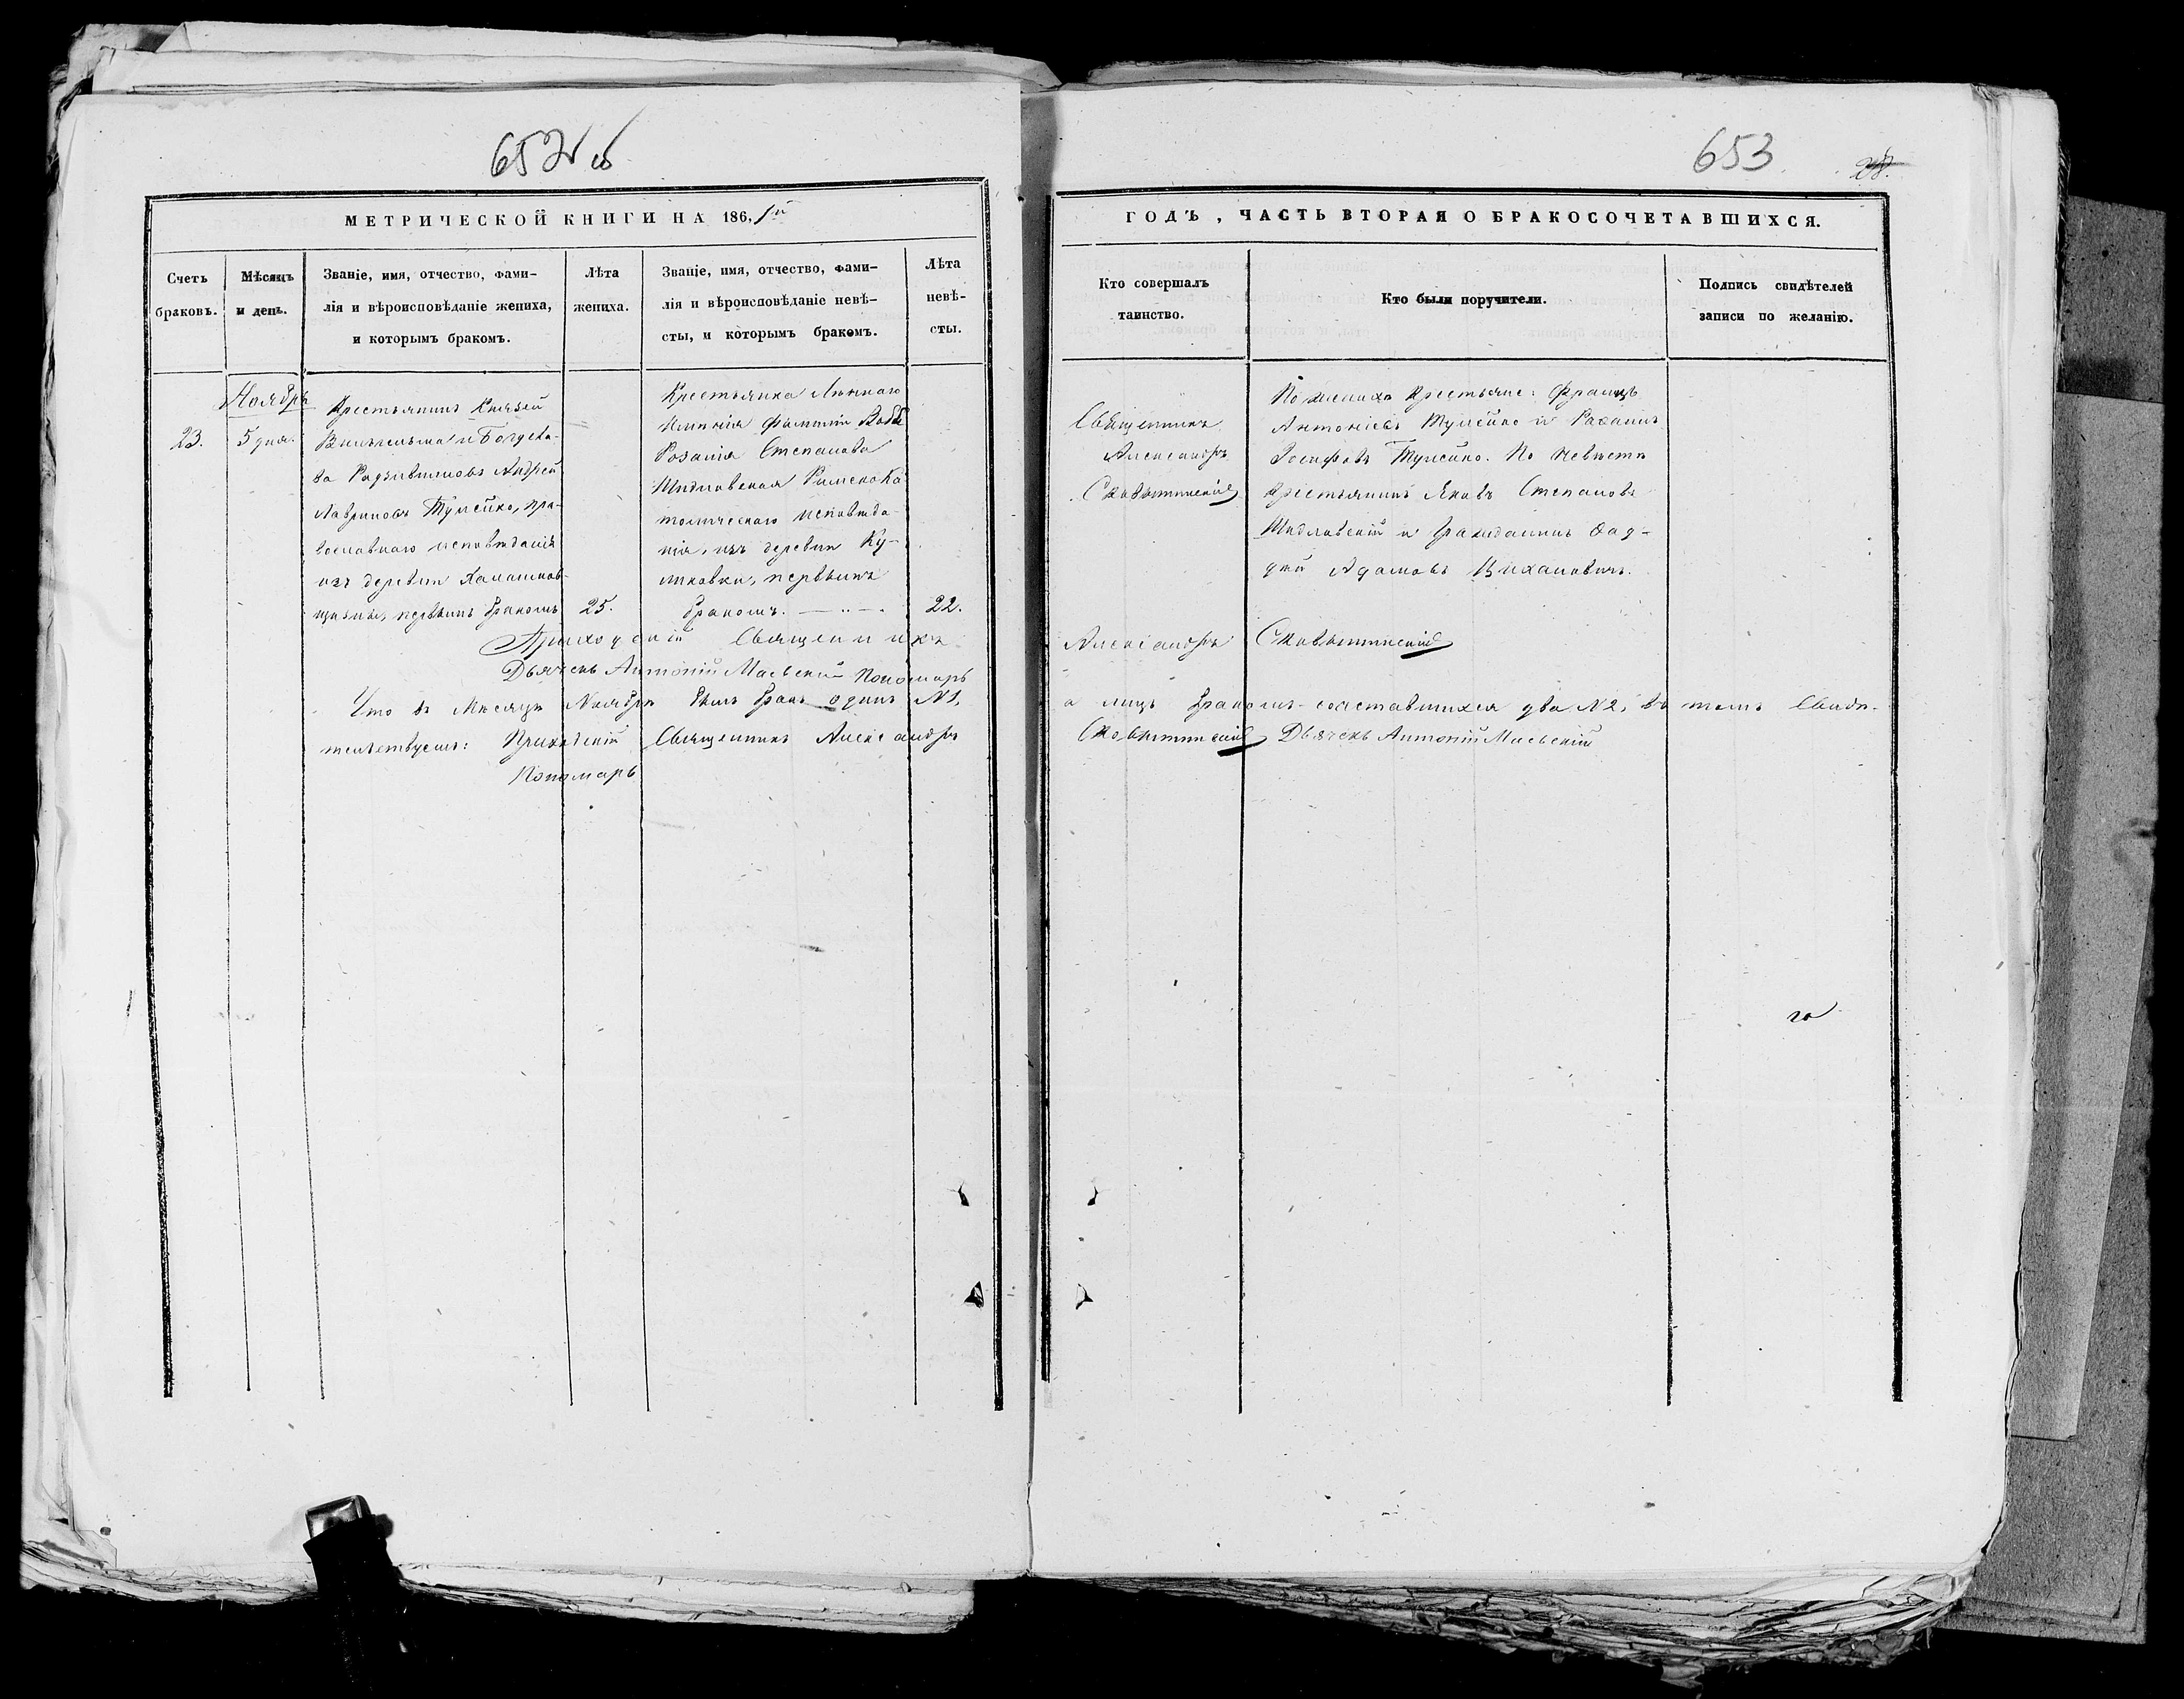 652 об
МЕТРИЧЕСКОЙ КНИГИ НА 1861й
Счетъ
браковъ.
Мѣсяцъ
и день.
Званіе, имя, отчество, фами-
лія и вѣроисповѣданіе жениха,
и которымъ бракомъ.
Лѣта
жениха.
Званіе, имя, отчество, фами-
лія и вѣроисповѣданіе невѣ-
сты, и которымъ бракомъ.
Лѣта
невѣ-
сты.
23.
Ноябрь
5 дня.
Крестьянинъ Князей
Вильгельма и Богусла-
ва Радзивиловъ Андрей
Лавриновъ Тулейко, пра-
вославнаго исповѣданія
изъ деревни
первымъ бракомъ
25.
Крестьянка
имѣнія
Розалія Степанова
Шидловская Римско Ка
толическаго исповѣда-
нія, изъ деревни Ку-
ликовки, первымъ
бракомъ.
22.
Приходскій Священникъ
Дьячекъ Антоній Маевскій Пономарь
Что въ Мѣсяцѣ Ноябрѣ былъ бракъ одинъ №1,
тельствуемъ: Приходскій Священникъ Александръ
Пономарь
653
28.
ГОДЪ, ЧАСТЬ ВТОРАЯ О БРАКОСОЧЕТАВШИХСЯ.
Кто совершалъ
таинство.
Кто были поручители.
Подпись свидѣтелей
записи по желанію.
Священникъ
Александръ
По женихѣ Крестьяне: Францъ
Антоніевъ Тулейко и
Іосифовъ Тулейко. По невѣстѣ
Крестьянинъ Яковъ Степановъ
Шидловскій и гражданинъ Фад-
дей Адамовъ
Александръ
а лицъ бракомъ сочетавшихся два №2, въ томъ Свидѣ-
Дьячекъ Антоній Маевскій